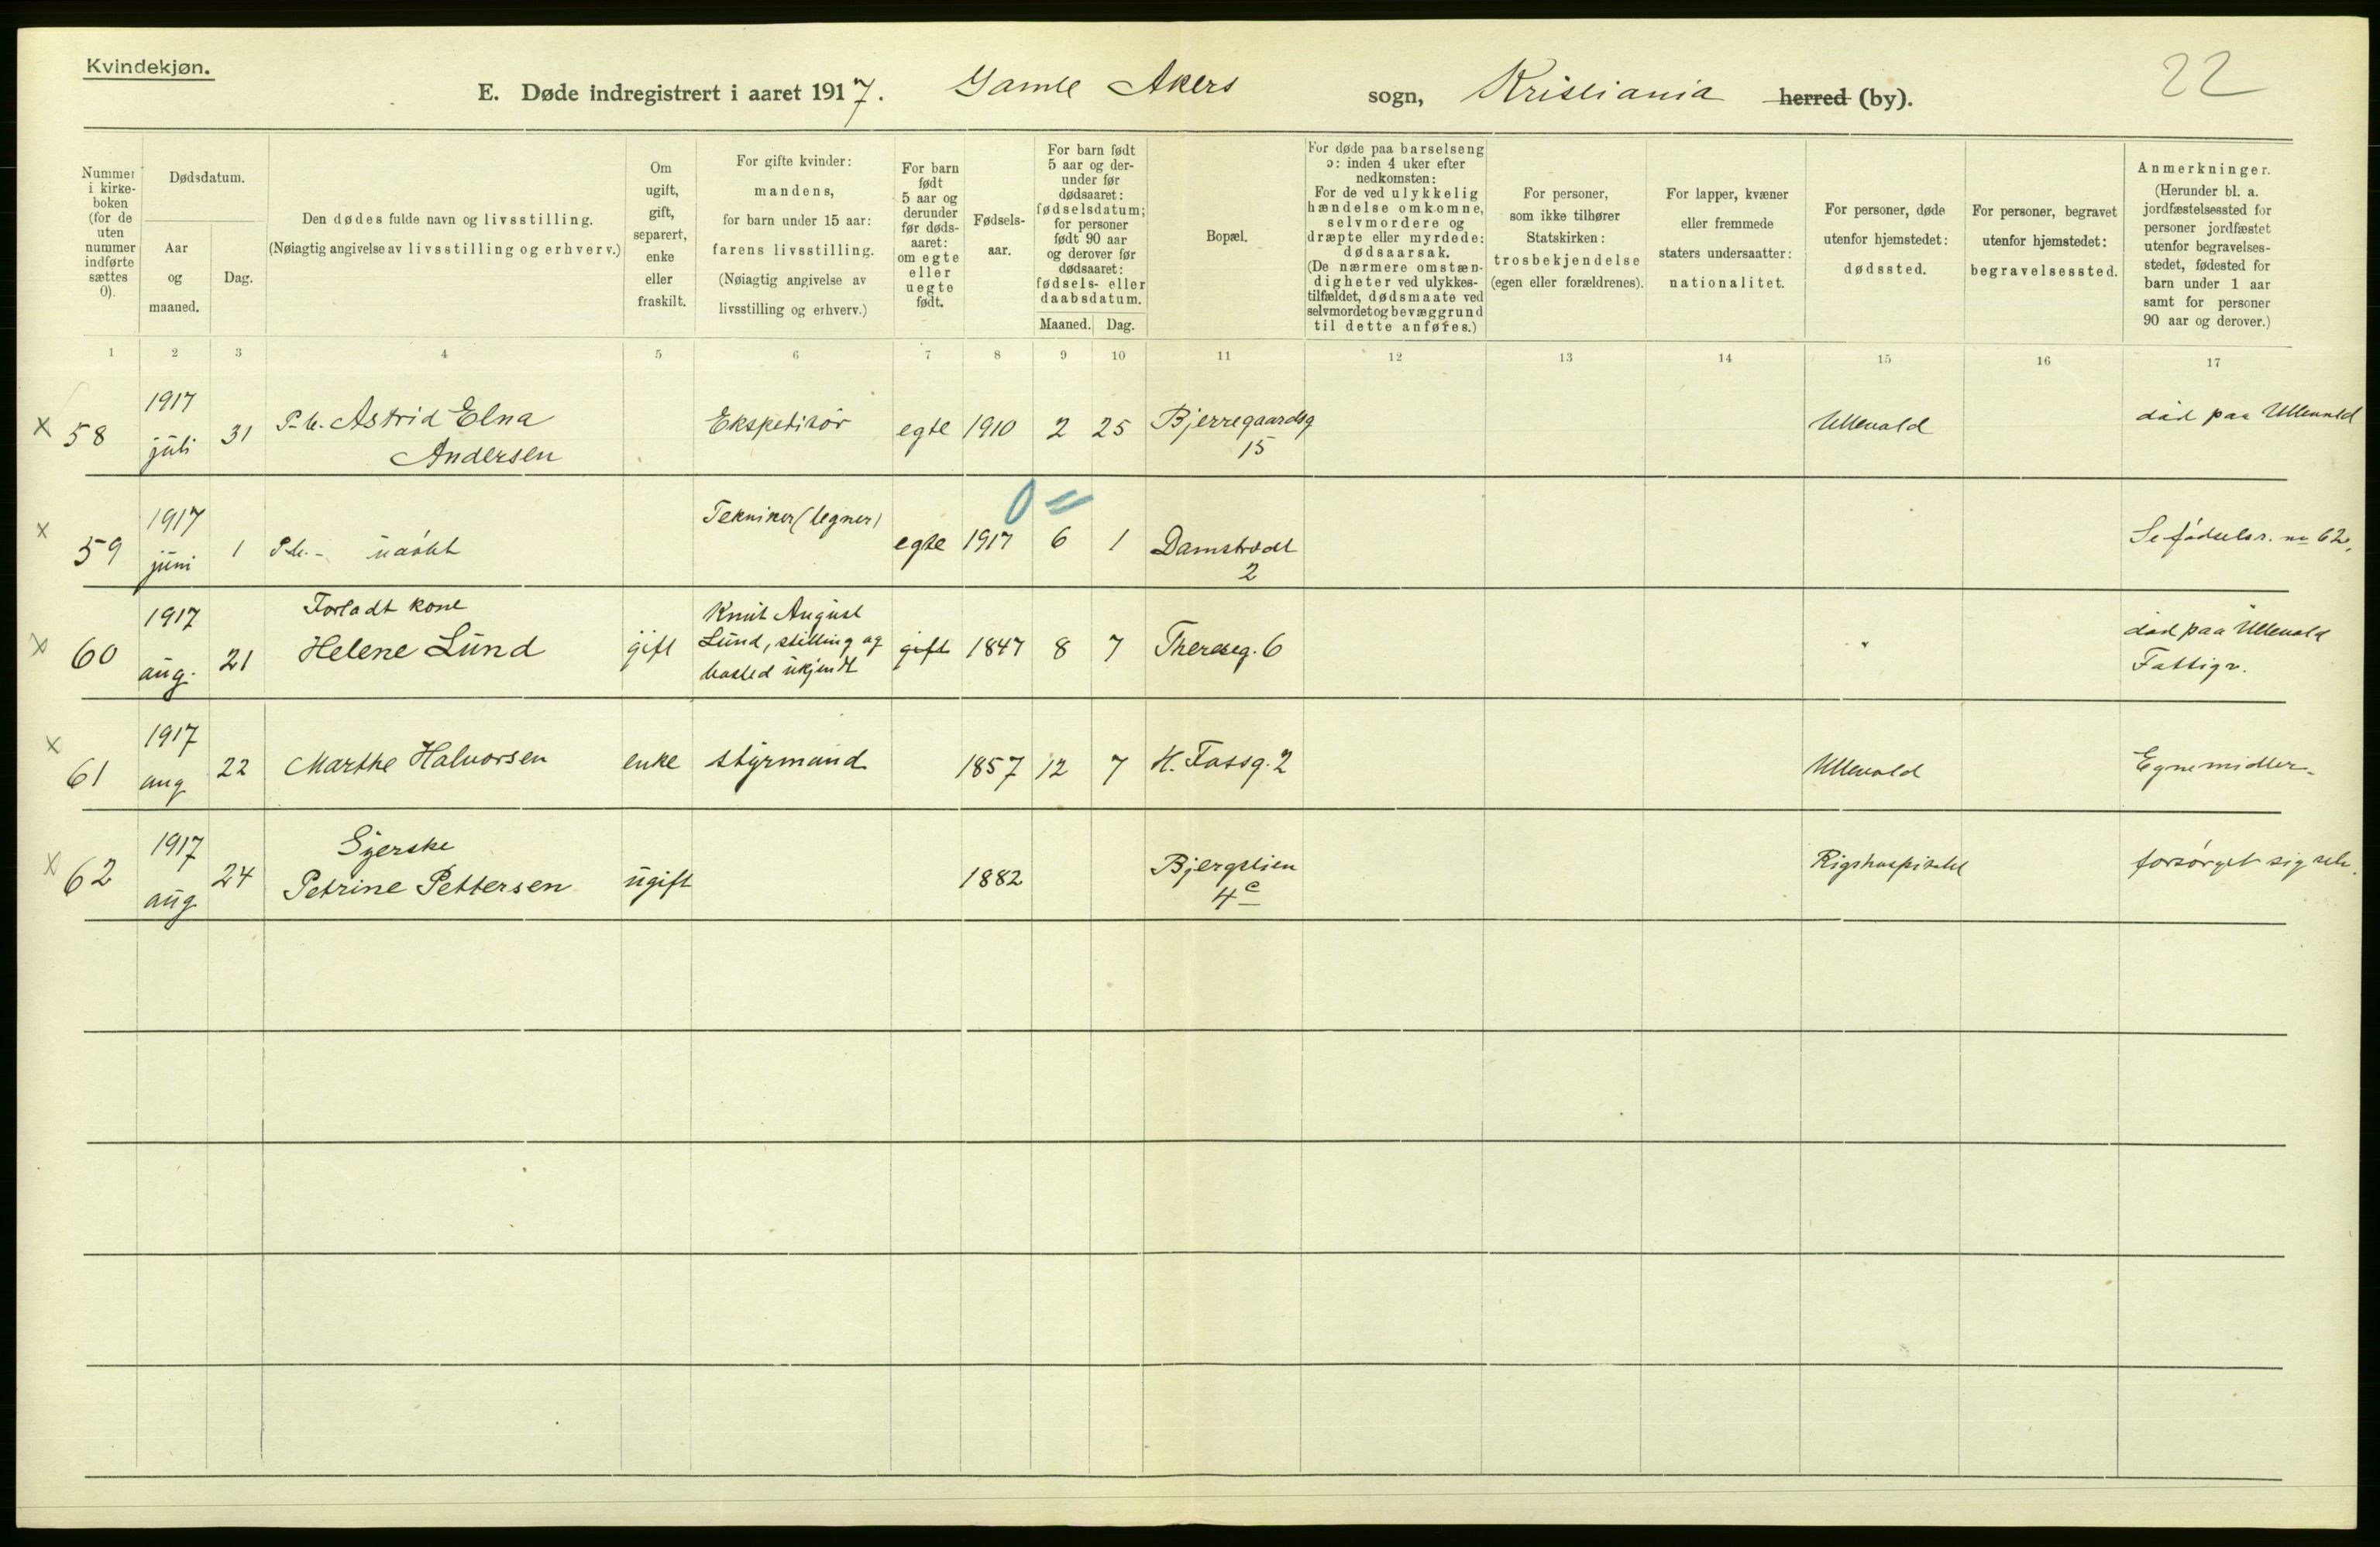 Kvindekjøn.
22
E. Døde indregistrert i aaret 1917. Gamle Akers sogn, Kristiania herred (by).
Nummer i kirke-boken (for de uten nummer indførte sættes 0).
Dødsdatum.
Aar og maaned.
Dag.
Den dødes fulde navn og livsstilling.
(Nøiagtig angivelse av livsstilling og erhverv.)
Om ugift, gift, separert, enke eller fraskilt.
For gifte kvinder: mandens, for barn under 15 aar: farens livsstilling. (Nøiagtig angivelse av livsstilling og erhverv.)
For barn født 5 aar og derunder før døds-aaret: om egte eller uegte født.
Fødsels-aar.
For barn født 5 aar og der-under før dødsaaret: fødselsdatum; for personer født 90 aar og derover før dødsaaret: fødsels- eller daabsdatum.
Maaned. Dag.
Bopæl.
For døde paa barselseng ɔ: inden 4 uker efter nedkomsten: For de ved ulykkelig hændelse omkomne, selvmordere og dræpte eller myrdede: dødsaarsak. (De nærmere omstæn-digheter ved ulykkes-tilfældet, dødsmaate ved selvmordet og bevæggrund til dette anføres.)
For personer, som ikke tilhører Statskirken: trosbekjendelse (egen eller forældrenes).
For lapper, kvæner eller fremmede staters undersaatter: nationalitet.
For personer, døde utenfor hjemstedet: dødssted.
For personer, begravet utenfor hjemstedet: begravelsessted.
Anmerkninger. (Herunder bl. a. jordfæstelsessted for personer jordfæstet utenfor begravelses-stedet, fødested for barn under 1 aar samt for personer 90 aar og derover.)
1 2 3 4 5 6 7 8 9 10 11 12 13 14 15 16 17
x 58 1917 juli 31 P.b. Astrid Elna Andersen Ekspeditør egte 1910 2 25 Bjerregaardsg 15 Ullevold død paa Ullevold
x 59 1917 juni 1 P.b. - udøbt Tekniker (tegner) egte 1917 6 1 Damstrædt 2 Se fødselsr. no 62.
x 60 1917 aug. 21 Forladt kone Helene Lund gift Knut August Lund, stilling og bosted ukjendt gift 1847 8 7 Thereseg. 6 " død paa Ullevold Fattigv.
x 61 1917 aug 22 Marthe Halvorsen enke styrmand 1857 12 7 H. Fossg. 2 Ullevold Egne midler.
x 62 1917 aug 24 Syerske Petrine Pettersen ugift 1882 Bjergslien 4c Rigshospitalet forsørget sig selv.